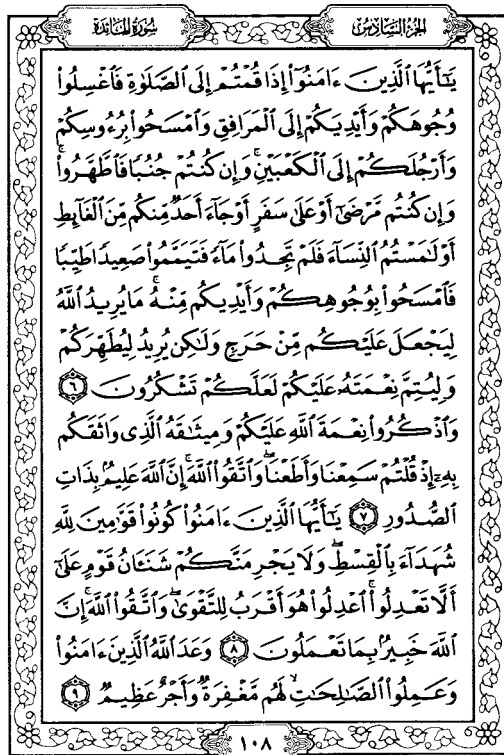 سُورَةُ المَائِدَةِ
الجُزءُ السَّادِسُ
يَٰٓأَيُّهَا ٱلَّذِينَ ءَامَنُوٓا۟ إِذَا قُمْتُمْ إِلَى ٱلصَّلَوٰةِ فَٱغْسِلُوا۟
وُجُوهَكُمْ وَأَيْدِيَكُمْ إِلَى ٱلْمَرَافِقِ وَٱمْسَحُوا۟ بِرُءُوسِكُمْ
وَأَرْجُلَكُمْ إِلَى ٱلْكَعْبَيْنِ ۚ وَإِن كُنتُمْ جُنُبًا فَٱطَّهَّرُوا۟ ۚ
وَإِن كُنتُم مَّرْضَىٰٓ أَوْ عَلَىٰ سَفَرٍ أَوْ جَآءَ أَحَدٌ مِّنكُم مِّنَ ٱلْغَآئِطِ
أَوْ لَٰمَسْتُمُ ٱلنِّسَآءَ فَلَمْ تَجِدُوا۟ مَآءً فَتَيَمَّمُوا۟ صَعِيدًا طَيِّبًا
فَٱمْسَحُوا۟ بِوُجُوهِكُمْ وَأَيْدِيكُم مِّنْهُ ۚ مَا يُرِيدُ ٱللَّهُ
لِيَجْعَلَ عَلَيْكُم مِّنْ حَرَجٍ وَلَٰكِن يُرِيدُ لِيُطَهِّرَكُمْ
وَلِيُتِمَّ نِعْمَتَهُۥ عَلَيْكُمْ لَعَلَّكُمْ تَشْكُرُونَ ٦
وَٱذْكُرُوا۟ نِعْمَةَ ٱللَّهِ عَلَيْكُمْ وَمِيثَٰقَهُ ٱلَّذِى وَاثَقَكُم
بِهِۦٓ إِذْ قُلْتُمْ سَمِعْنَا وَأَطَعْنَا ۖ وَٱتَّقُوا۟ ٱللَّهَ ۚ إِنَّ ٱللَّهَ عَلِيمٌۢ بِذَاتِ
ٱلصُّدُورِ ٧ يَٰٓأَيُّهَا ٱلَّذِينَ ءَامَنُوا۟ كُونُوا۟ قَوَّٰمِينَ لِلَّهِ
شُهَدَآءَ بِٱلْقِسْطِ ۖ وَلَا يَجْرِمَنَّكُمْ شَنَـَٔانُ قَوْمٍ عَلَىٰٓ
أَلَّا تَعْدِلُوا۟ ۚ ٱعْدِلُوا۟ هُوَ أَقْرَبُ لِلتَّقْوَىٰ ۖ وَٱتَّقُوا۟ ٱللَّهَ ۚ إِنَّ
ٱللَّهَ خَبِيرٌۢ بِمَا تَعْمَلُونَ ٨ وَعَدَ ٱللَّهُ ٱلَّذِينَ ءَامَنُوا۟
وَعَمِلُوا۟ ٱلصَّٰلِحَٰتِ ۙ لَهُم مَّغْفِرَةٌ وَأَجْرٌ عَظِيمٌ ٩
١٠٨